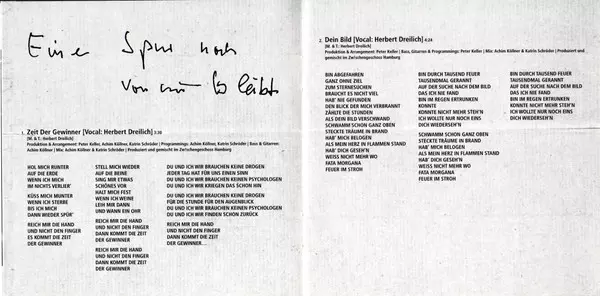 Eine Spur noch
von mir bleibt
1. Zeit Der Gewinner [Vocal: Herbert Dreilich] 3:30
[M. & T.: Herbert Dreilich]
Produktion & Arrangement: Peter Keller, Achim Köllner, Katrin Schröder | Programmings: Achim Köllner, Katrin Schröder | Bass & Gitarren:
Achim Köllner | Mix: Achim Köllner & Katrin Schröder | Produziert und gemischt im Zwischengeschoss Hamburg
HOL MICH RUNTER
AUF DIE ERDE
WENN ICH MICH
IM NICHTS VERLIER'
KÜSS MICH MUNTER
WENN ICH STERBE
BIS ICH MICH
DANN WIEDER SPÜR'
REICH MIR DIE HAND
UND NICHT DEN FINGER
ES KOMMT DIE ZEIT
DER GEWINNER
STELL MICH WIEDER
AUF DIE BEINE
SING MIR ETWAS
SCHÖNES VOR
HALT MICH FEST
WENN ICH WEINE
LEIH MIR DANN
UND WANN EIN OHR
REICH MIR DIE HAND
UND NICHT DEN FINGER
DANN KOMMT DIE ZEIT
DER GEWINNER
REICH MIR DIE HAND
UND NICHT DEN FINGER
DANN KOMMT DIE ZEIT
DER GEWINNER
DU UND ICH WIR BRAUCHEN KEINE DROGEN
JEDER TAG HAT FÜR UNS EINEN SINN
DU UND ICH WIR BRAUCHEN KEINEN PSYCHOLOGEN
DU UND ICH WIR KRIEGEN DAS SCHON HIN
DU UND ICH WIR BRAUCHEN KEINE DROGEN
FÜR DIE STUNDE FÜR DEN AUGENBLICK
DU UND ICH WIR BRAUCHEN KEINEN PSYCHOLOGEN
DU UND ICH WIR FINDEN SCHON ZURÜCK
REICH MIR DIE HAND
UND NICHT DEN FINGER
DANN KOMMT DIE ZEIT
DER GEWINNER...
2. Dein Bild [Vocal: Herbert Dreilich] 4:24
[M. & T.: Herbert Dreilich]
Produktion & Arrangement: Peter Keller | Bass, Gitarren & Programmings: Peter Keller | Mix: Achim Köllner & Katrin Schröder | Produziert und
gemischt im Zwischengeschoss Hamburg
BIN ABGEFAHREN
GANZ OHNE ZIEL
ZUM STERNESUCHEN
BRAUCHT ES NICHT VIEL
HAB' NIE GEFUNDEN
DEN BLICK DER MICH VERBRANNT
ZÄHLTE DIE STUNDEN
ALS DEIN BILD VERSCHWAND
SCHWAMM SCHON GANZ OBEN
STECKTE TRÄUME IN BRAND
HAB' MICH BELOGEN
ALS MEIN HERZ IN FLAMMEN STAND
HAB' DICH GESEH'N
WEISS NICHT MEHR WO
FATA MORGANA
FEUER IM STROH
BIN DURCH TAUSEND FEUER
TAUSENDMAL GERANNT
AUF DER SUCHE NACH DEM BILD
DAS ICH NIE FAND
BIN IM REGEN ERTRUNKEN
KONNTE
KONNTE NICHT MEHR STEH'N
ICH WOLLTE NUR NOCH EINS
DICH WIEDERSEH'N
SCHWAMM SCHON GANZ OBEN
STECKTE TRÄUME IN BRAND
HAB' MICH BELOGEN
ALS MEIN HERZ IN FLAMMEN STAND
HAB' DICH GESEH'N
WEISS NICHT MEHR WO
FATA MORGANA
FEUER IM STROH
BIN DURCH TAUSEND FEUER
TAUSENDMAL GERANNT
AUF DER SUCHE NACH DEM BILD
DAS ICH NIE FAND
BIN IM REGEN ERTRUNKEN
KONNTE NICHT MEHR STEH'N
ICH WOLLTE NUR NOCH EINS
DICH WIEDERSEH'N